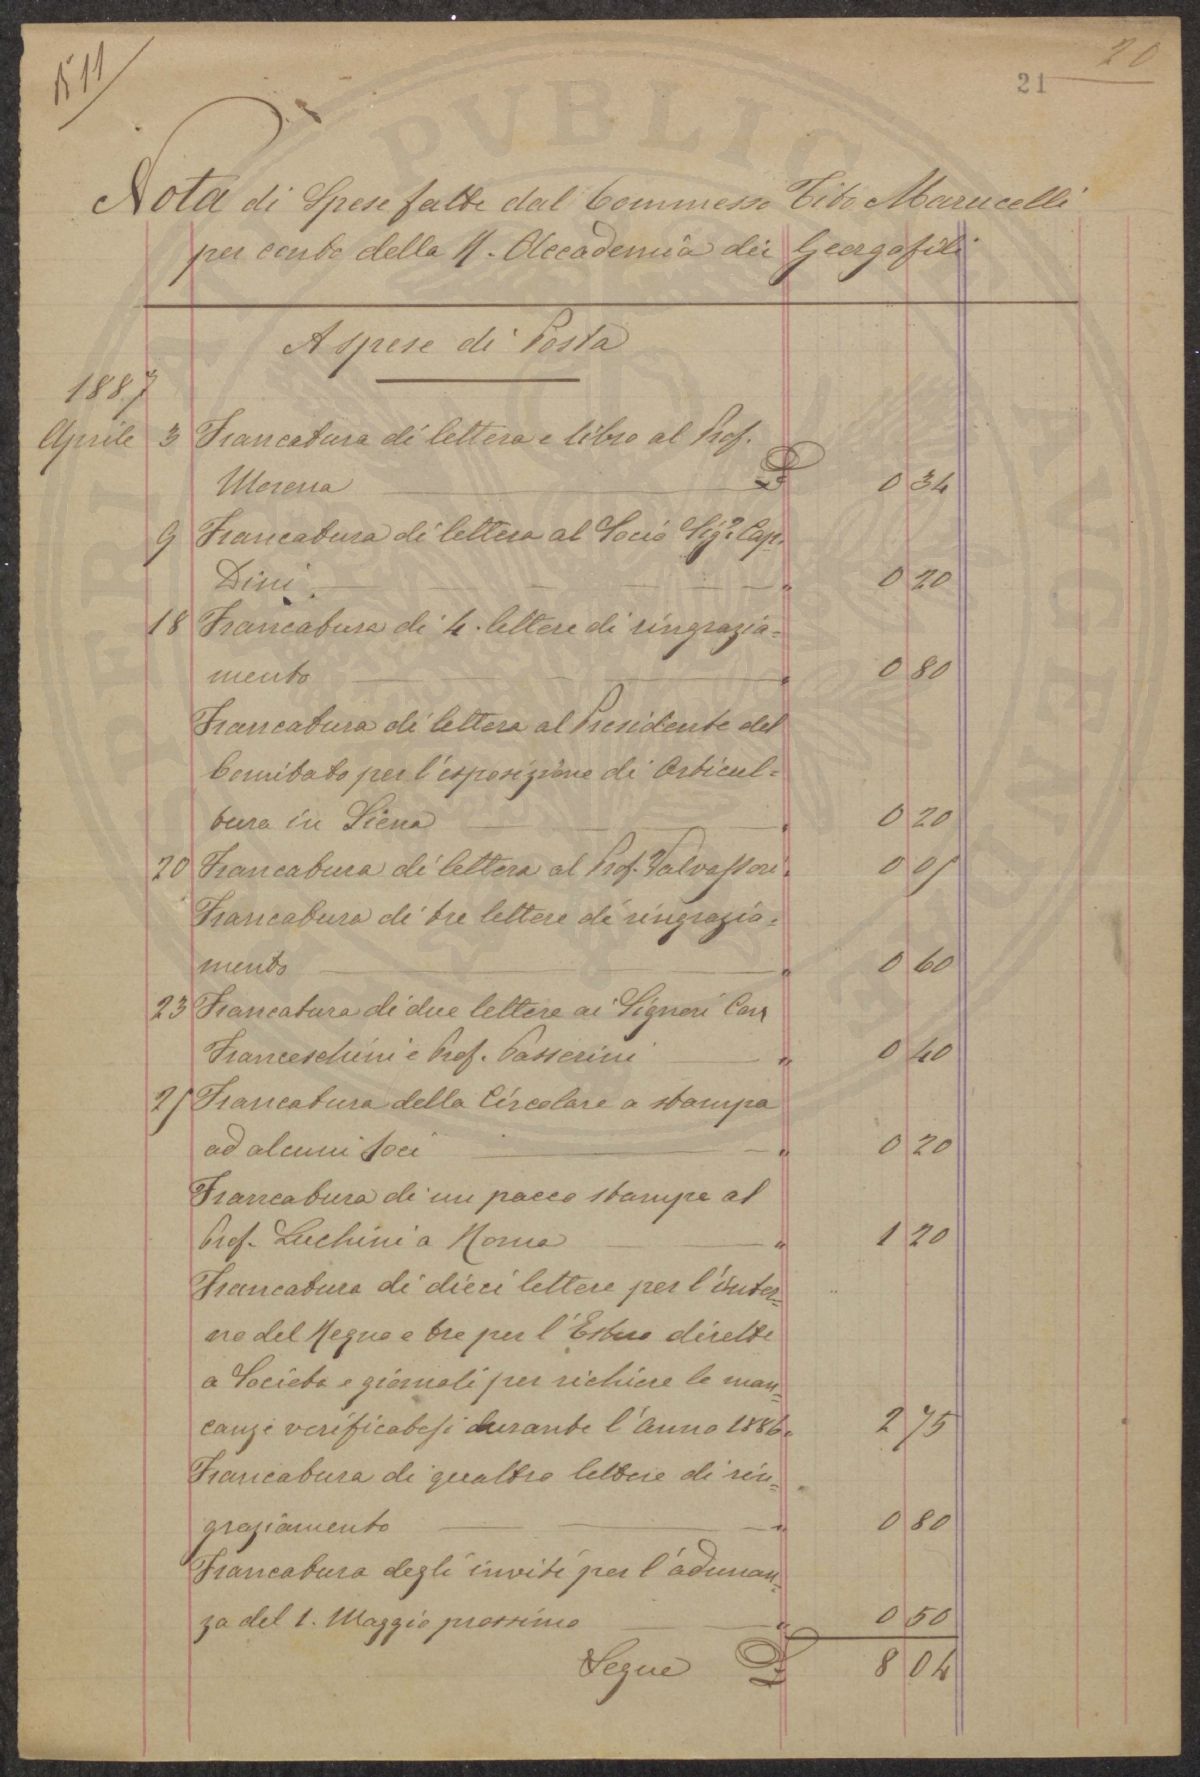 1511
20
21
Nota di Spese fatte dal Commesso Tito Marucelli
per conto della R. Accademia dei Georgofili
A spese di Posta
1887
Aprile 3 Francatura di lettera e libro al Prof.
Morena £ 0 34
9 Francatura di lettera al Socio Sigr. Cap.
Dini " 0 20
18 Francatura di 4. lettere di ringrazia=
mento " 0 80
Francatura di lettera al Presidente del
Comitato per l'esposizione di Orticul=
tura in Siena " 0 20
20 Francatura di lettera al Prof. Valvassori " 0 05
Francatura di tre lettere di ringrazia=
mento " 0 60
23 Francatura di due lettere ai Signori Cav
Franceschini e Prof. Passerini " 0 40
25 Francatura della Circolare a stampa
ad alcuni Soci " 0 20
Francatura di un pacco stampe al
Prof. Luchini a Roma " 1 20
Francatura di dieci lettere per l'inter=
no del Regno e tre per l'Estero dirette
a Società e giornali per richiere le man=
canze verificatesi durante l'anno 1886 " 2 75
Francatura di quattro lettere di rin=
graziamento " 0 80
Francatura degli inviti per l'adunan=
za del 1. Maggio prossimo " 0 50
Segue £ 8 04